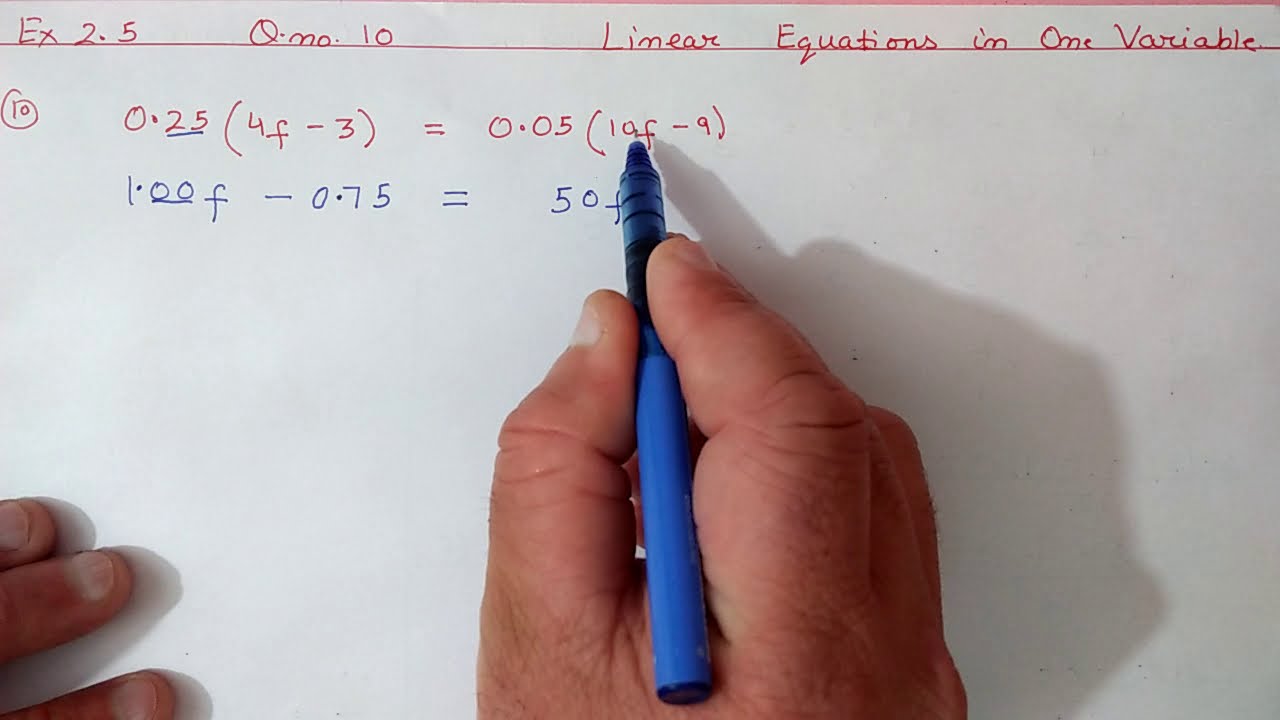 Ex 2.5 Q.no. 10 Linear Equations in One Variable
10 0.25 (4f - 3) = 0.05 (10f - 9)
1.00f - 0.75 = 50f